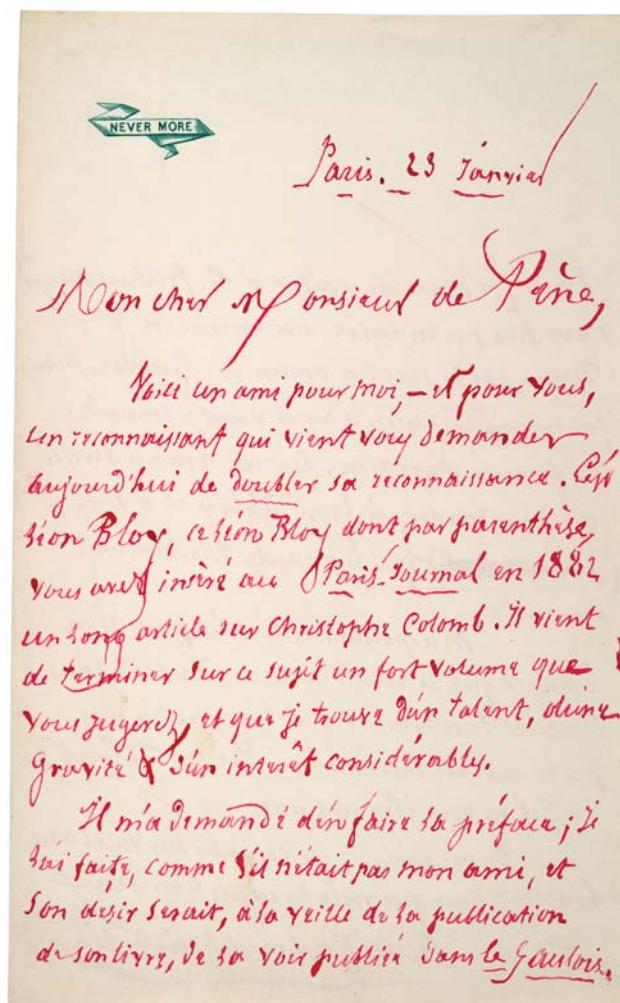 NEVER MORE
Paris. 23 Janvier
Mon cher Monsieur de Pène,
Voici un ami pour moi, — et pour vous,
un reconnaissant qui vient vous demander
aujourd'hui de doubler sa reconnaissance. C'est
Léon Bloy, ce Léon Bloy dont par parenthèse,
vous avez inséré au Paris-Journal en 1882
un long article sur Christophe Colomb. Il vient
de terminer sur ce sujet un fort volume que
vous jugerez, et que je trouve d'un talent, d'une
gravité & d'un interêt considérables.
Il m'a demandé d'en faire la préface ; je
l'ai faite, comme s'il n'était pas mon ami, et
son desir serait, à la veille de la publication
de son livre, de la voir publiée dans le Gaulois.